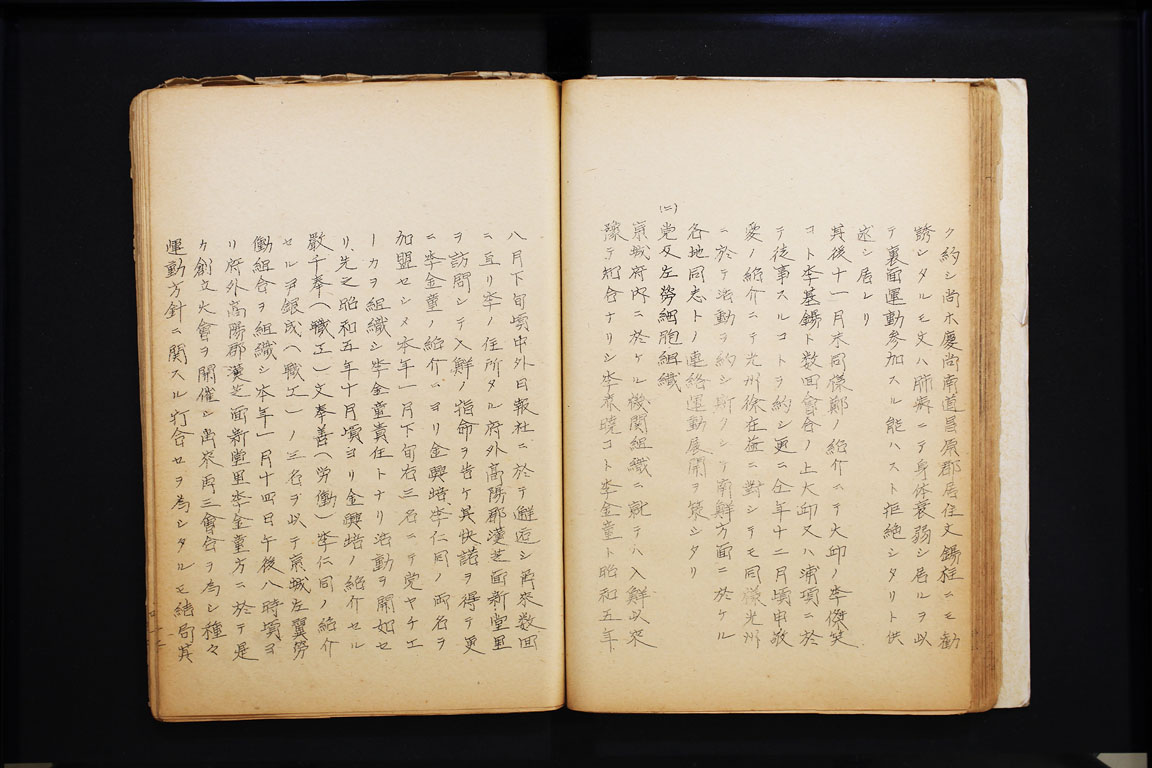 ク約シ尚ホ慶尚南道昌原郡居住文錫柱ニモ勧
誘シタルモ文ハ肺病ニテ身体衰弱シ居ルヲ以
テ裏面運動参加スル能ハスト拒絶シタリト供
述シ居レリ
其後十一月末同様鄭ノ紹介ニテ大邱ノ李傑笑
コト李基錫ト数回會合ノ上大邱又ハ浦項ニ於
テ従事スルコトヲ約シ更ニ仝年十二月頃申敬
愛ノ紹介ニテ光州徐在益ニ對シテモ同様光州
ニ於テ活動ヲ約シ斯クシテ南鮮方面ニ於ケル
各地同志トノ連絡運動展開ヲ策シタリ
(二)党及左労細胞組織
京城府内ニ於ケル機関組織ニ就テハ入鮮以来
豫テ知合ナリシ李春曉コト李金童ト昭和五年
八月下旬頃中外日報社ニ於テ邂逅シ再来数回
ニ亘リ李ノ住所タル府外高陽郡漢芝面新堂里
ヲ訪問シテ入鮮ノ指命ヲ告ケ其快諾ヲ得テ更
ニ李金童ノ紹介ニヨリ金興培李仁同ノ両名ヲ
加盟セシメ本年一月下旬右三名ニテ党ヤチエ
ーカヲ組織シ李金童責任トナリ活動ヲ開始セ
リ、先之昭和五年十月頃ヨリ金興培ノ紹介セル
嚴千奉(職工)文奉善(労働)李仁同ノ紹介
セル尹銀成(職工)ノ三名ヲ以テ京城左翼勞
働組合ヲ組織シ本年一月十四日午後八時頃ヨ
リ府外高陽郡漢芝面新堂里李金童方ニ於テ是
カ創立大會ヲ開催シ尚来再三會合ヲ為シ種々
運動方針ニ関スル打合セヲ為シタルモ結局其